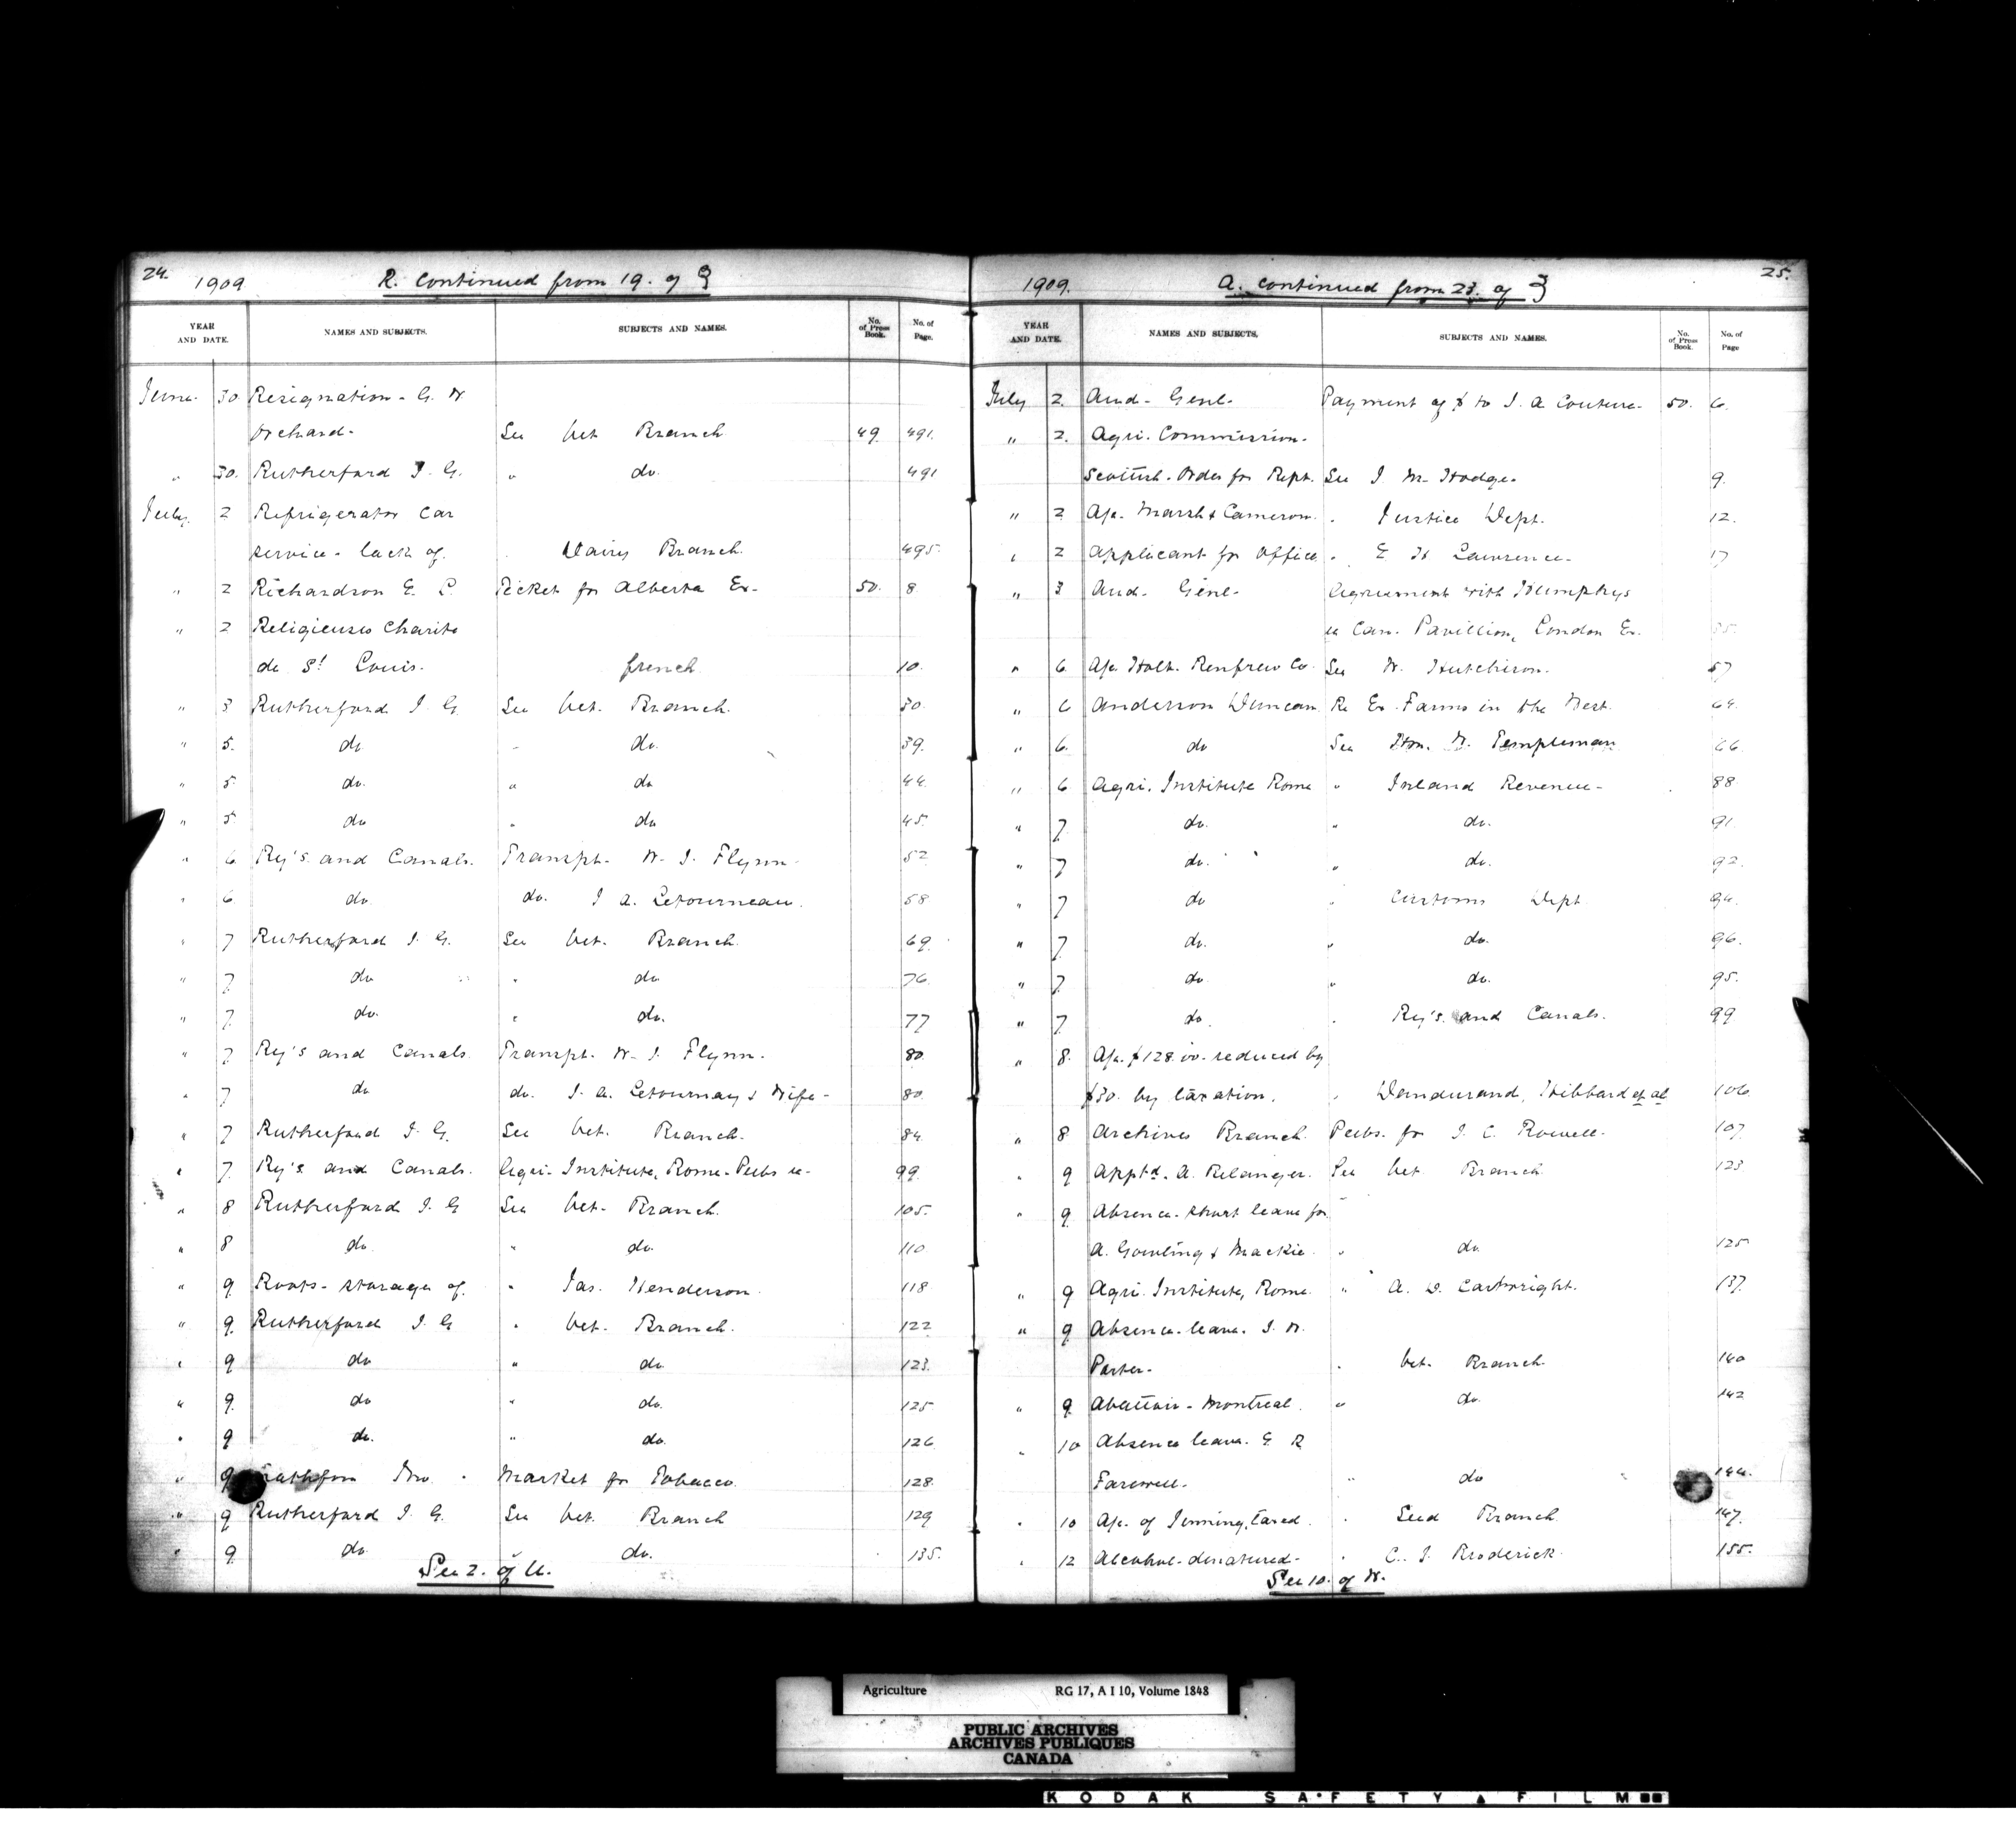 24. 1909 R. continued from 19. of Q
YEAR AND DATE. NAMES AND SUBJECTS. SUBJECTS AND NAMES. No. of Press Book. No. of Page.
June. 30 Resignation - G. W
Orchard. See Vet Branch 49 491.
" 30. Rutherford J. G. " do. 491
July. 2 Refrigerator Car
service - lack of. Dairy Branch. 495.
" 2 Richardson E. L. Ticket for Alberta Ex- 50. 8
" 2 Religieuses Charite
de St Louis. french 10.
" 3 Rutherford J. G See Vet. Branch. 30.
" 5. do " do. 39.
" 5 do. " do 44.
" 5 do " do 45.
" 6 Ry's and Canals. Transpt. W. J. Flynn. 52
" 6 do do. J A. Letourneau. 58
" 7 Rutherford J. G. See Vet. Branch. 69.
" 7 do " do 76.
" 7 do. " do. 77
" 7 Ry's and Canals Transpt. W. J. Flynn. 80.
" 7 do do. J. A. Letournay & Wife - 80.
" 7 Rutherford J. G. See Vet. Branch. 84.
" 7. Ry's and Canals. Agri. Institute, Rome - Pubs re- 99.
" 8 Rutherford J. G See Vet. Branch. 105.
" 8 do. " do. 110
" 9 Roots - storage of. " Jas. Henderson. 118
" 9. Rutherford J. G " Vet. Branch. 122
" 9 do " do 123.
" 9. do " do. 125
" 9 do. " do. 126
" 9 Jno. Market for Tobacco. 128.
" 9 Rutherford J. G. See Vet. Branch 129
" 9. do. " do. 135.
See 2. of U.
1909. A. continued from 23. of 25.
YEAR AND DATE. NAMES AND SUBJECTS. SUBJECTS AND NAMES. No. of Press Book. No. of Page
July 2. Aud - Genl - Payment of $ to J. A Couture - 50. 6.
" 2. Agri. Commission.
Scottish. Order for Rept. See J. M. Hodge. 9.
" 2 A/c. Marsh & Cameron. " Justice Dept. 12.
" 2 Applicant for Office " E H Lawrence. 17
" 3 Aud - Genl - Agreement with Humphys
re Can. Pavillion, London Ex. 35.
" 6. A/c. Holt. Renfrew Co. See W. Hutchison. 57
" 6 Anderson Duncan Re Ex. Farms in the West. 64.
" 6. do See Hon. W. Templeman 66
" 6 Agri. Institute Rome " Inland Revenue - 88
" 7. do. " do. 91
" 7 do. " do. 92.
" 7 do " Customs Dept 94.
" 7. do. " do. 96.
" 7. do " do. 95.
" 7. do. " Ry's. and Canals. 99
" 8. A/c. $128.00 - reduced by
$30. by taxation. " Dandurand, Hibbard et al 106
" 8 Archives Branch. Pubs. for J. C. Rowell. 107
" 9 Apptd. A. Belanger. See Vet Branch 123
" 9. Absence - short leave for
A. Gowling & Mackie. " do. 125
" 9 Agri. Institute, Rome. " A. D. Cartwright. 137.
" 9 Absence - leave. J. W.
Porter. " Vet. Branch. 140
" 9. Abattoir - Montreal. " do. 142
" 10 Absence leave. G R
Farewell. " do 144.
" 10 A/c. of Jenning, taxed. " Seed Branch 147.
" 12 Alcohol - denatured - " C. J. Broderick. 155.
See 10. of W.
Agriculture RG 17, A I 10, Volume 1848
PUBLIC ARCHIVES
ARCHIVES PUBLIQUES
CANADA
KODAK SAFETY FILM